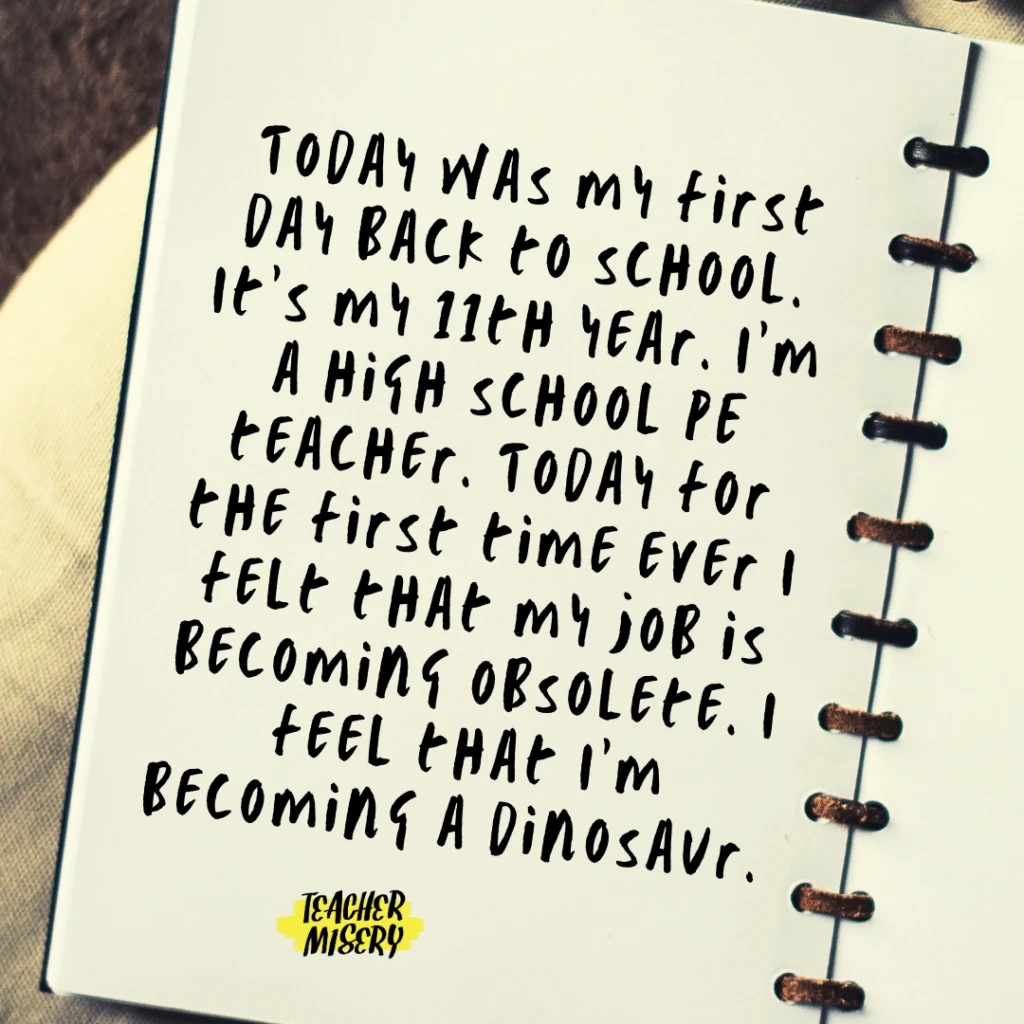 TODAY WAS my first
DAY BACK to SCHOOL.
It's my 11tH YEAr. I'm
A HiGH SCHOOL PE
tEACHEr. TODAY for
tHE first timE EVEr I
fELt tHAt my joB is
BECOMiNG OBSOLEtE. I
fEEL tHAt I'm
BECOMiNG A DiNOSAUr.
TEACHER
MISERY